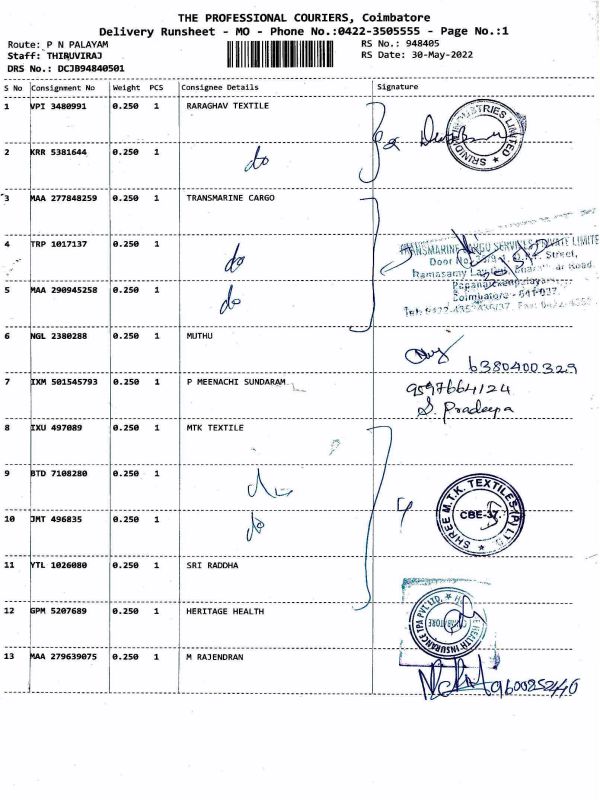 THE PROFESSIONAL COURIERS, Coimbatore
Delivery Runsheet - MO - Phone No.:0422-3505555 - Page No.:1
Route: P N PALAYAM
RS No.: 948405
Staff: THIRUVIRAJ
RS Date: 30-May-2022
DRS No.: DCJB94840501
S No Consignment No Weight PCS Consignee Details Signature
1 VPI 3480991 0.250 1 RARAGHAV TEXTILE
SRINIDHI INDUSTRIES LIMITED
2 KRR 5381644 0.250 1 do
3 MAA 277848259 0.250 1 TRANSMARINE CARGO
TRANSMARINE CARGO SERVICES PRIVATE LIMITE
4 TRP 1017137 0.250 1 do
Door No. Street,
Ramasamy Road,
5 MAA 290945258 0.250 1 do
Coimbatore - 641 037.
6 NGL 2380288 0.250 1 MUTHU
6380400329
7 IXM 501545793 0.250 1 P MEENACHI SUNDARAM
9597664124
S. Pradeepa
8 IXU 497089 0.250 1 MTK TEXTILE
9 BTD 7108280 0.250 1 do
10 JMT 496835 0.250 1 do
SHREE M.T.K. TEXTILES (P) LTD
CBE-37.
11 YTL 1026080 0.250 1 SRI RADDHA
12 GPM 5207689 0.250 1 HERITAGE HEALTH
HEALTH INSURANCE TPA PVT LTD.
13 MAA 279639075 0.250 1 M RAJENDRAN
9600852440